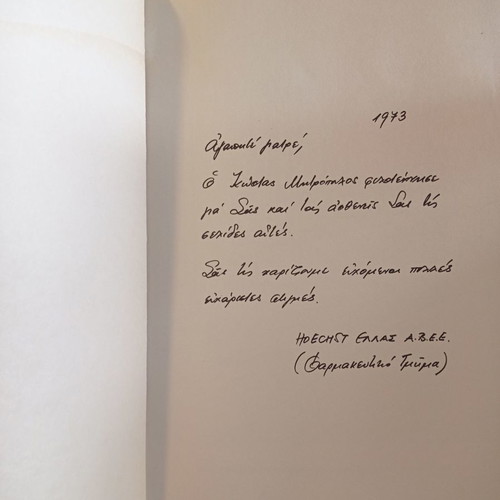 1973
Ἀγαπητέ γιατρέ,
Ὁ Κώστας Μητρόπουλος φιλοτέχνησε
γιά Σᾶς καί τούς ἀσθενεῖς Σας τίς
σελίδες αὐτές.
Σᾶς τίς χαρίζουμε εὐχόμενοι πολλές
εὐχάριστες στιγμές.
HOECHST ΕΛΛΑΣ Α.Β.Ε.Ε.
(Φαρμακευτικό Τμῆμα)